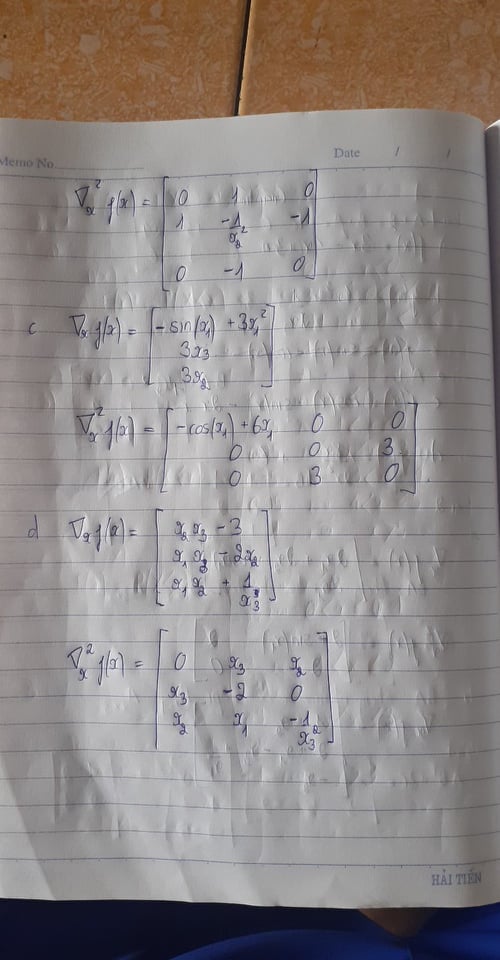 Memo No
Date / /
∇ₓ² f(x) = [ 0 1 0
1 -1/x₂² -1
0 -1 0 ]
c ∇ₓ f(x) = [ -sin(x₁) + 3x₁²
3x₃
3x₂ ]
∇ₓ² f(x) = [ -cos(x₁) + 6x₁ 0 0
0 0 3
0 3 0 ]
d ∇ₓ f(x) = [ x₂ x₃ - 3
x₁ x₃ - 2x₂
x₁ x₂ + 1/x₃ ]
∇ₓ² f(x) = [ 0 x₃ x₂
x₃ -2 0
x₂ x₁ -1/x₃² ]
HẢI TIẾN